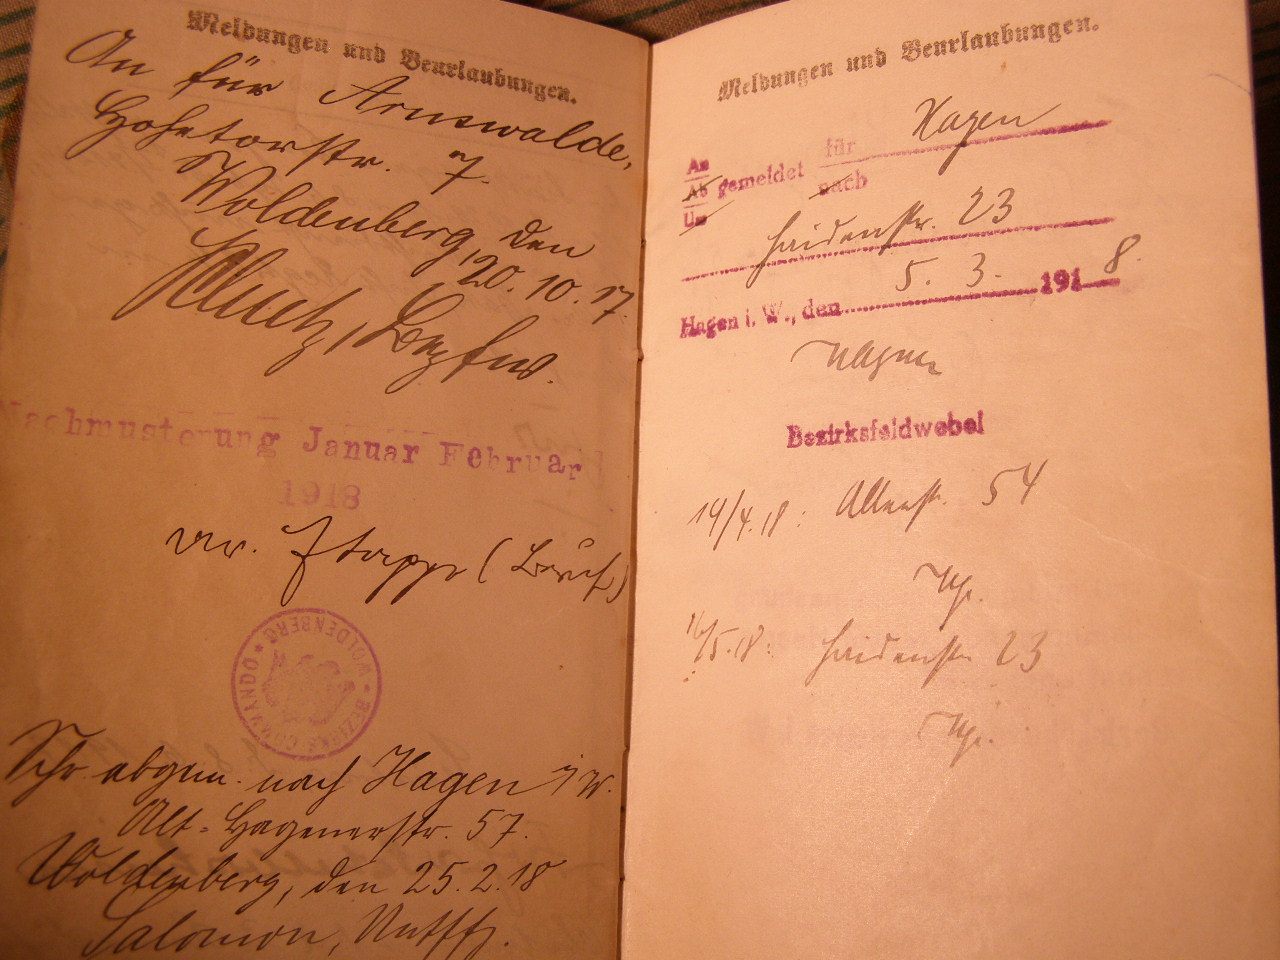 Meldungen und Beurlaubungen.
An für Arnswalde,
Hohetorstr. 7.
Woldenberg, den
20. 10. 17.
Nachmusterung Januar Februar
1918
Etappe
* BEZIRKS COMMANDO * WOLDENBERG
abgem. nach Hagen i W.
Alt-Hagenerstr. 57.
Woldenberg, den 25. 2. 18
Salomon, Untffz.
Meldungen und Beurlaubungen.
An
Ab gemeldet für Hagen
Um nach
Heidenstr. 23
Hagen i. W., den 5. 3. 1918.
Wagner
Bezirksfeldwebel
14/4. 18: Allenstr. 54
Wg.
16/5. 18: Heidenstr 23
Wg.